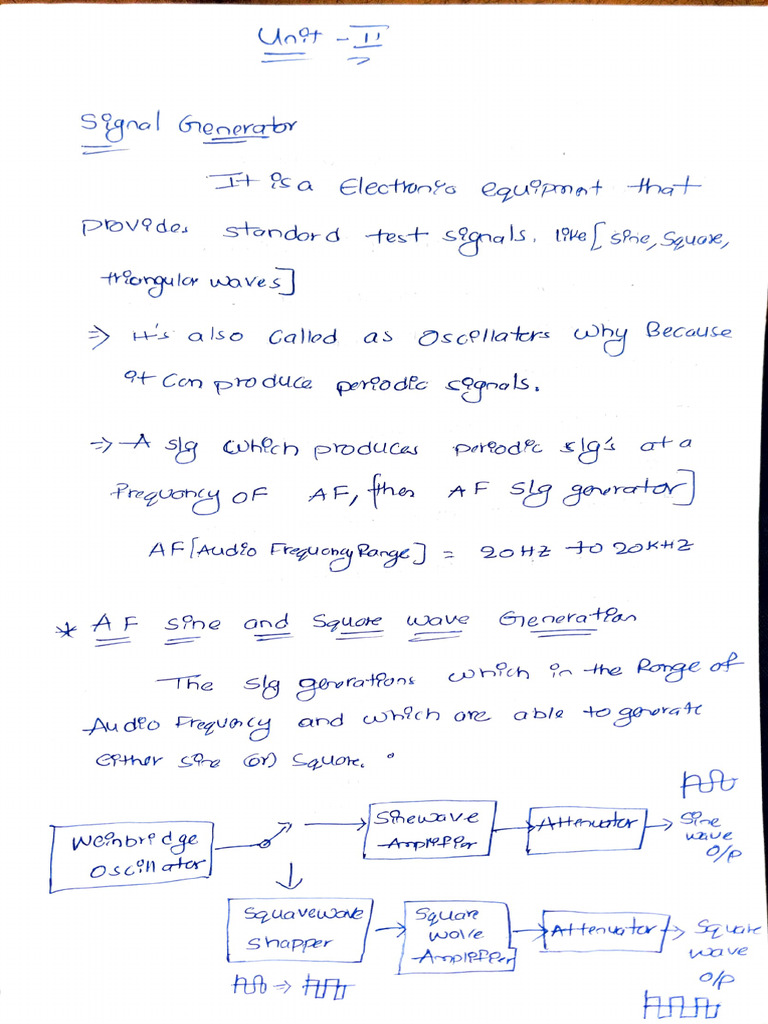 Unit - II
Signal Generator
It is a Electronic equipment that
provides standard test signals. like [sine, square,
triangular waves]
⇒ It's also Called as Oscillators why Because
it Can produce periodic signals.
⇒ A sig which produces periodic sig's at a
Frequency OF AF, [then AF sig generator]
AF [Audio Frequency Range] = 20HZ to 20KHZ
* AF sine and Square wave Generation
The sig generations which in the Range of
Audio Frequency and which are able to generate
either sine (or) square.
Weinbridge
Oscillator
Sinewave
Amplifier
Attenuator
Sine
wave
O/P
Squarewave
Shapper
Square
wave
Amplifier
Attenuator
Square
wave
O/P